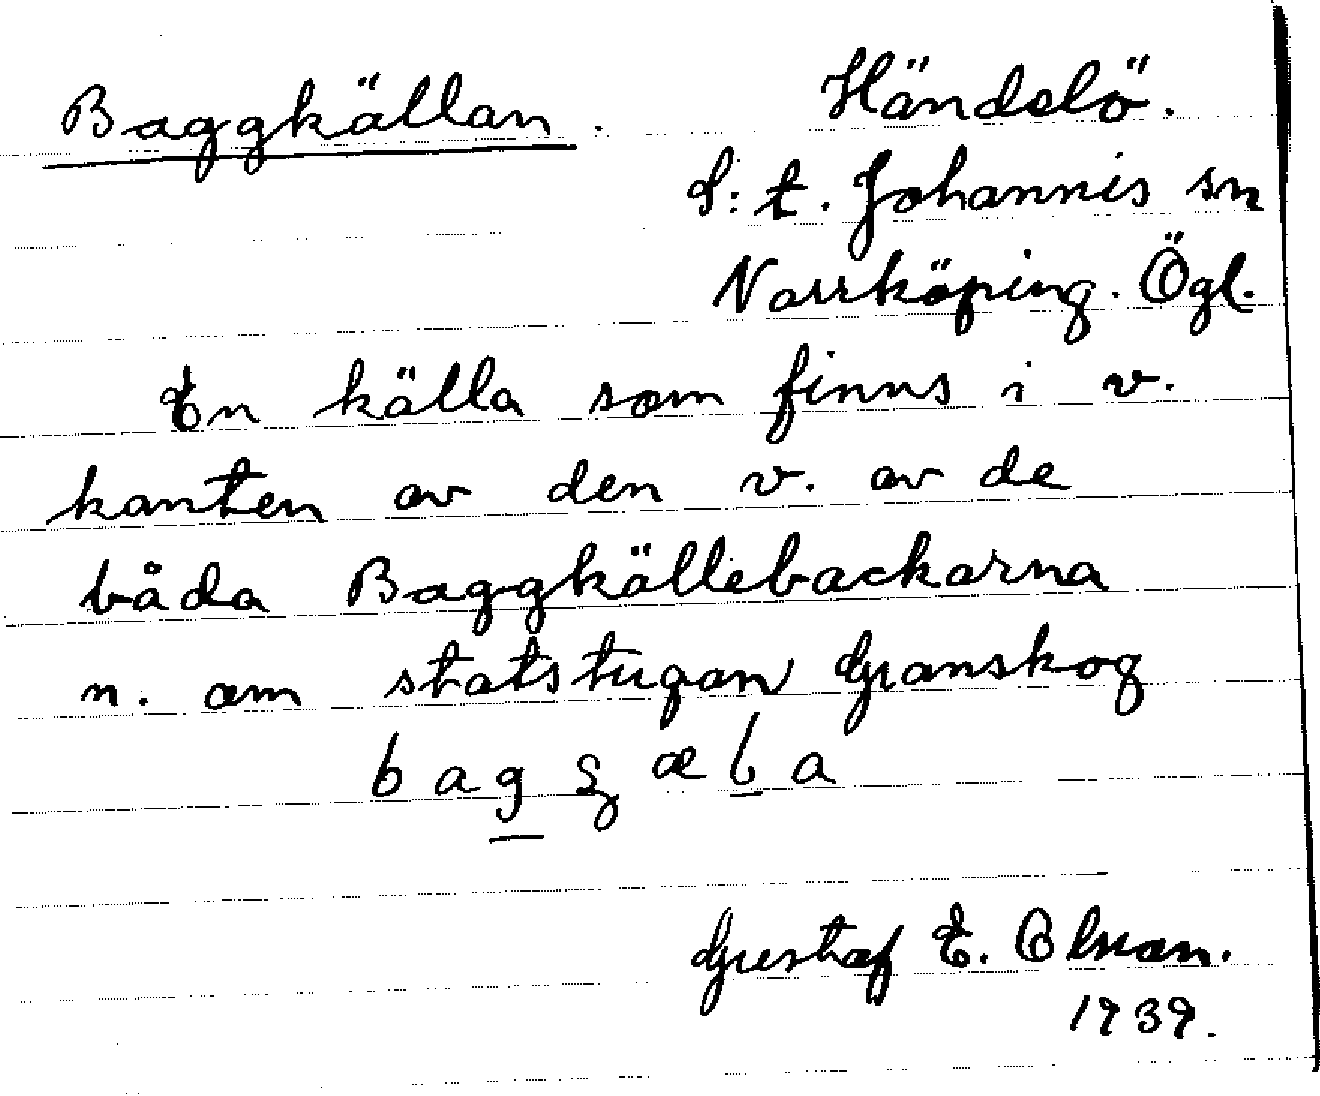 Baggkällan. Händelö.
S:t. Johannis sn
Norrköping. Ögl.
En källa som finns i v.
kanten av den v. av de
båda Baggkällebackarna
n. om statstugan Granskog
Gustaf E. Olson.
1939.